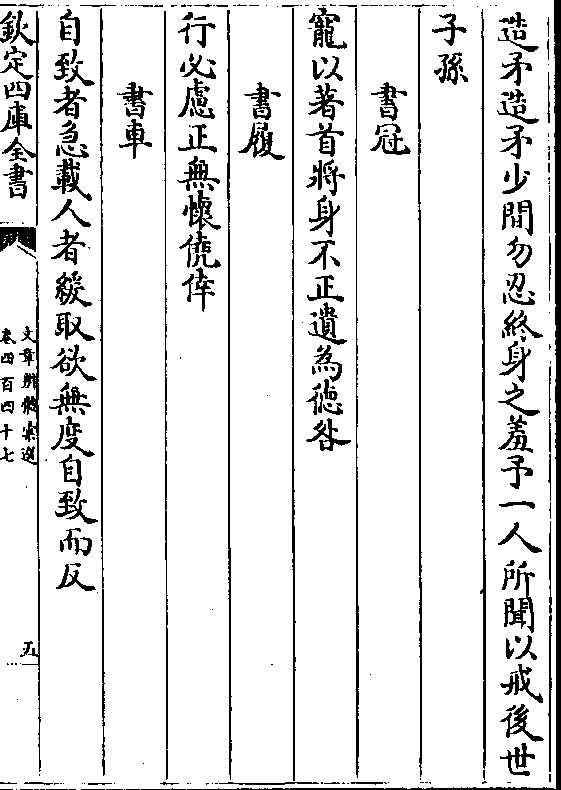 造矛造矛少間勿忍終身之羞予一人所聞以戒後世
子孫
書冠
寵以著首將身不正遺為德咎
書履
行必慮正無懷僥倖
書車
自致者急載人者緩取欲無度自致而反
欽定四庫全書
文章辨體彙選
卷四百四十七
五